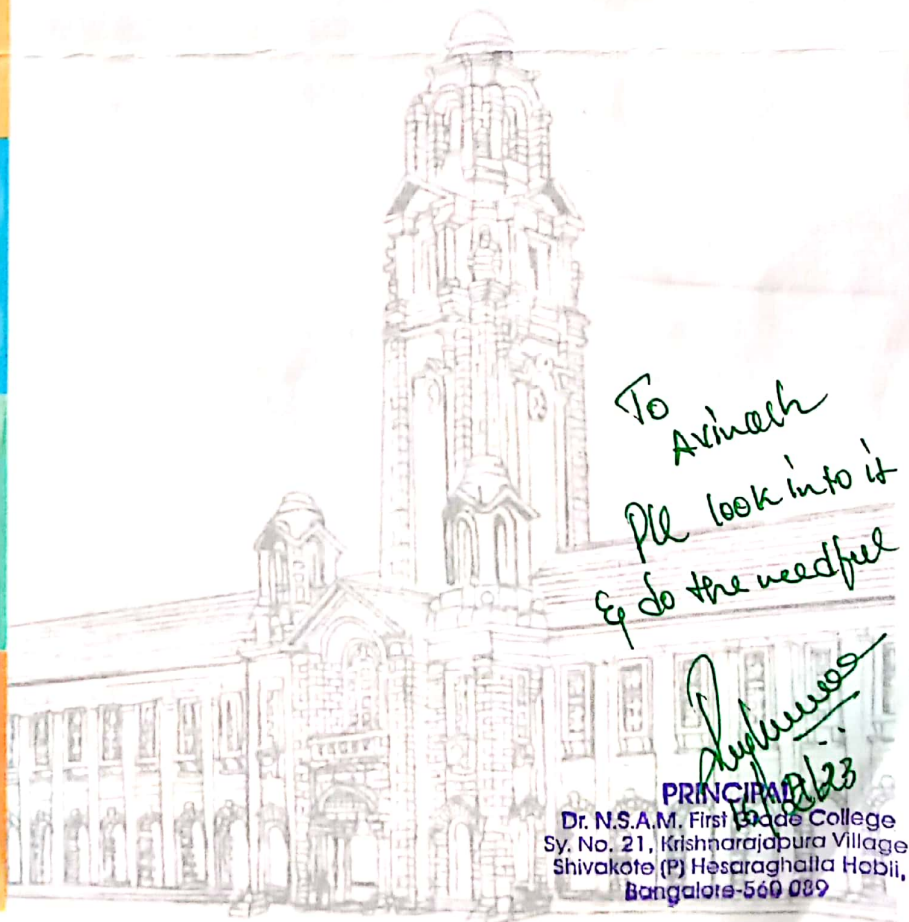 To
Avinash
Pll look into it
& do the needful
PRINCIPAL
Dr. N.S.A.M. First Grade College
Sy. No. 21, Krishnarajapura Village
Shivakote (P) Hesaraghalla Hobli,
Bangalore-560 089